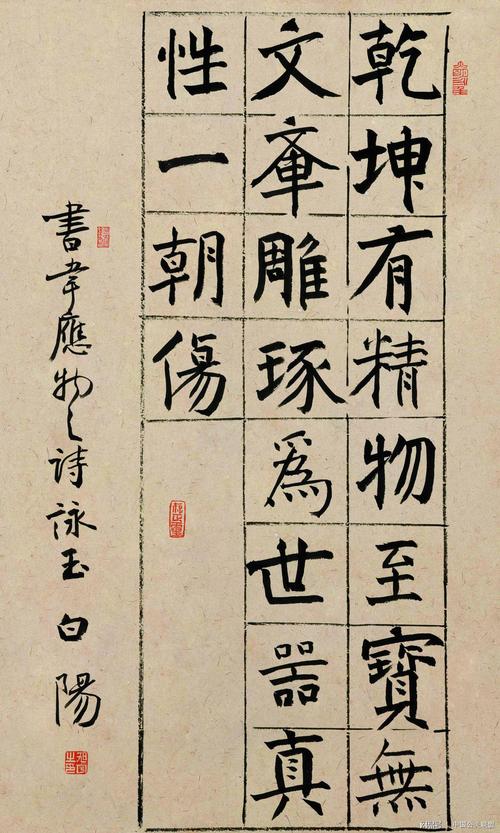 乾坤有精物至寶無
文章雕琢為世器真
性一朝傷
書韋應物之詩詠玉 白陽